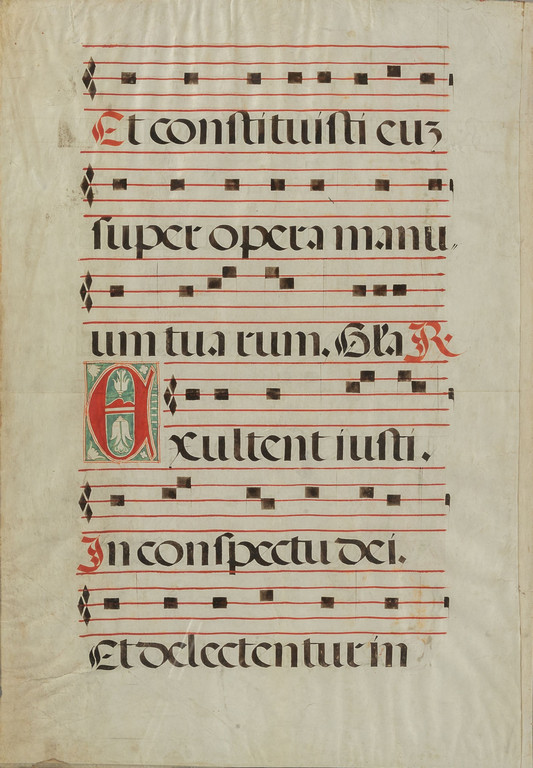 Et conſtituiſti cuꝫ
ſuper opera manu〃
um tuarum. Gl'a R.
Exultent iuſti.
In conſpectu dei.
Et delectentur in